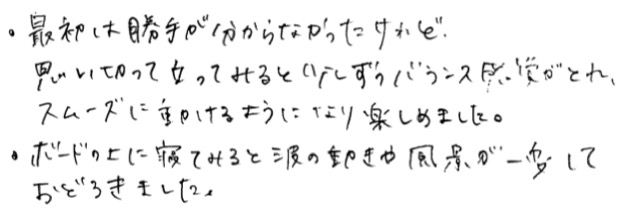 ・最初は勝手が分からなかったけれど、
思い切って立ってみると少しずつバランス感覚がとれ、
スムーズに動けるようになり楽しめました。
・ボードの上に寝てみると波の動きや風景が一変して
おどろきました。